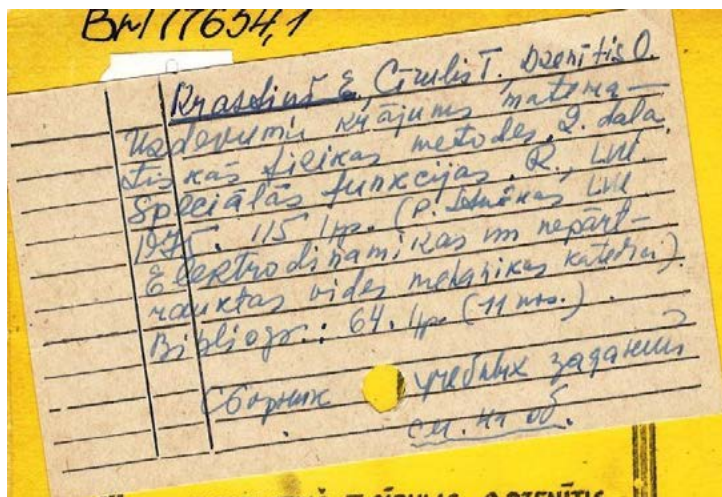 Br/77654,1
Krastiņš E., Cīrulis T., Dzenītis O.
Uzdevumu krājums matemā-
tiskās fizikas metodēs. 2. daļa.
Speciālās funkcijas. R., LVU.
1975. 115 lpp. (P. Stučkas LVU
Elektrodinamikas un nepārt-
rauktas vides mehānikas katedra).
Bibliogr.: 64. lpp. (11 nos.).
Сборник учебных заданий
см. на об.